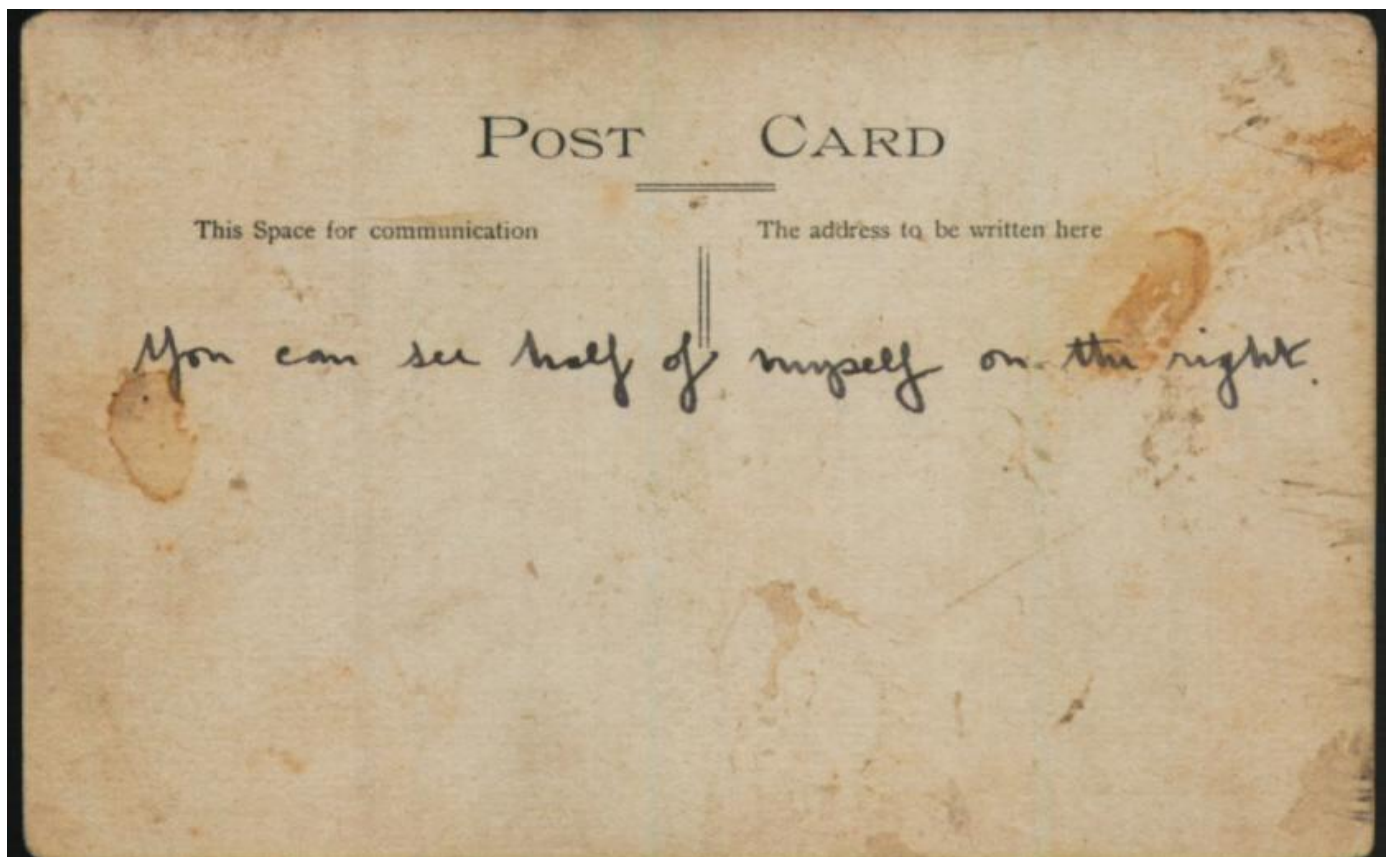 POST CARD
This Space for communication
The address to be written here
You can see half of myself on the right.